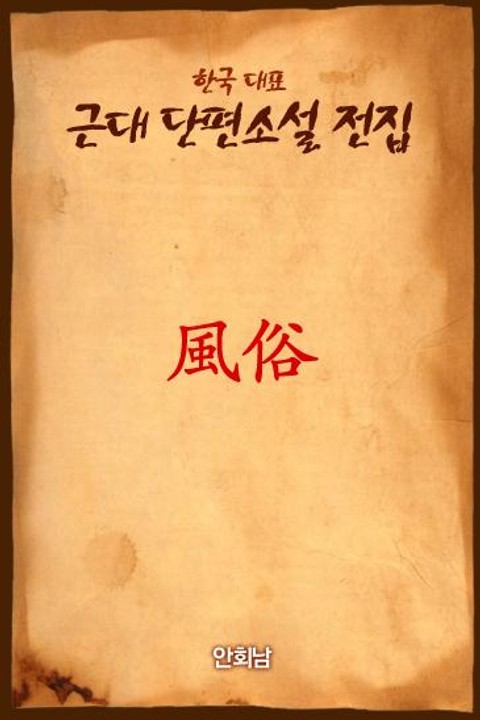 한국 대표
근대 단편소설 전집
風俗
안회남